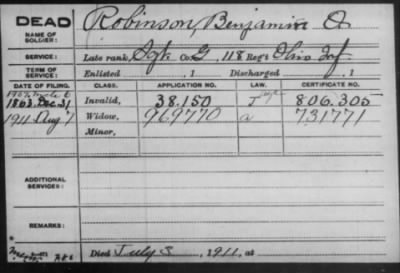 DEAD
NAME OF SOLDIER:
Robinson, Benjamin
SERVICE:
Late rank, Sgt Co. G, 118 Reg't Ohio Inf.
TERM OF SERVICE:
Enlisted , 1 Discharged , 1
DATE OF FILING. CLASS. APPLICATION NO. LAW. CERTIFICATE NO.
1863 Dec. 31 Invalid, 38.150 806.305
1911 Aug 7 Widow, 969770 a 731771
Minor,
ADDITIONAL SERVICES:
REMARKS:
Died July 3, 1911, at